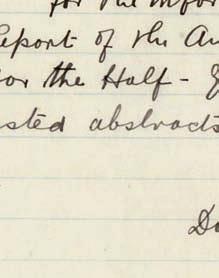 for the infor
Report of the Au
for the Half-
sted abstracts
Du